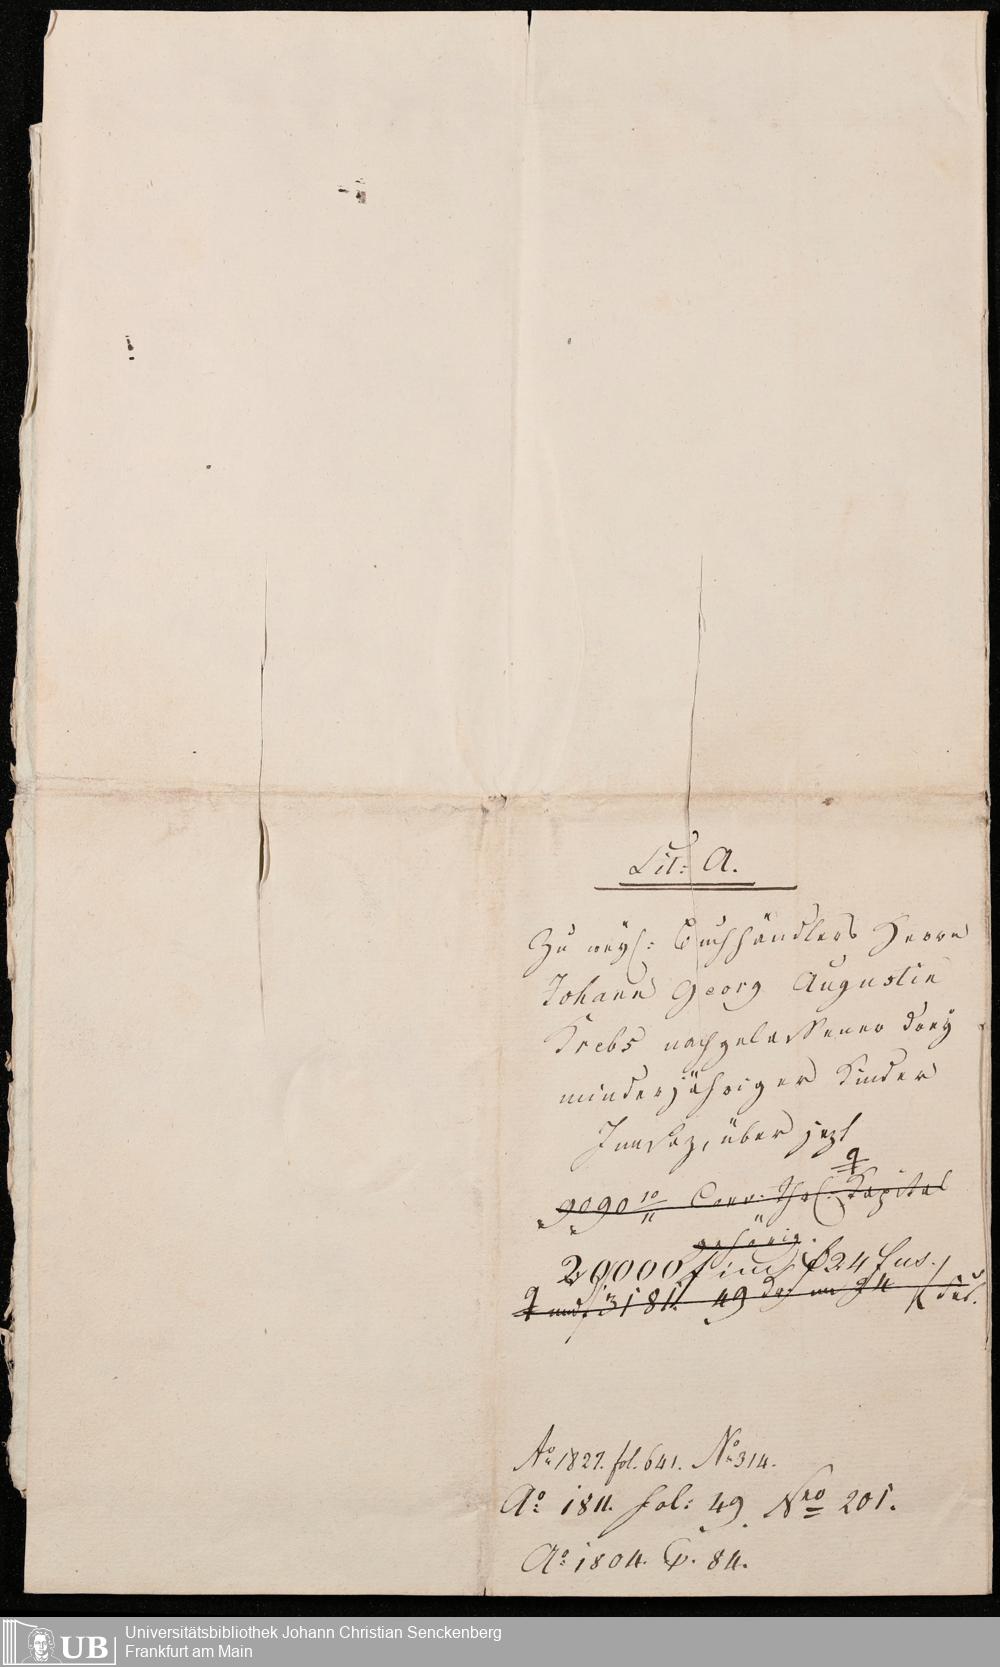 Lit: A.
Zu weyl: Buchhändlers Herrn
Johann Georg Augustin
Krebs nachgelassener drey
minderjähriger Kinder
Innsaz, über jezt
9090 10/11 Conv. Thlr. Kapital
gehörig.
20000 f im f 24 fus.
3181. 49 24
Ao 1827. fol. 641. No 314.
Ao 1811. fol: 49. Nro 201.
Ao 1804. 84.
UB Universitätsbibliothek Johann Christian Senckenberg
Frankfurt am Main